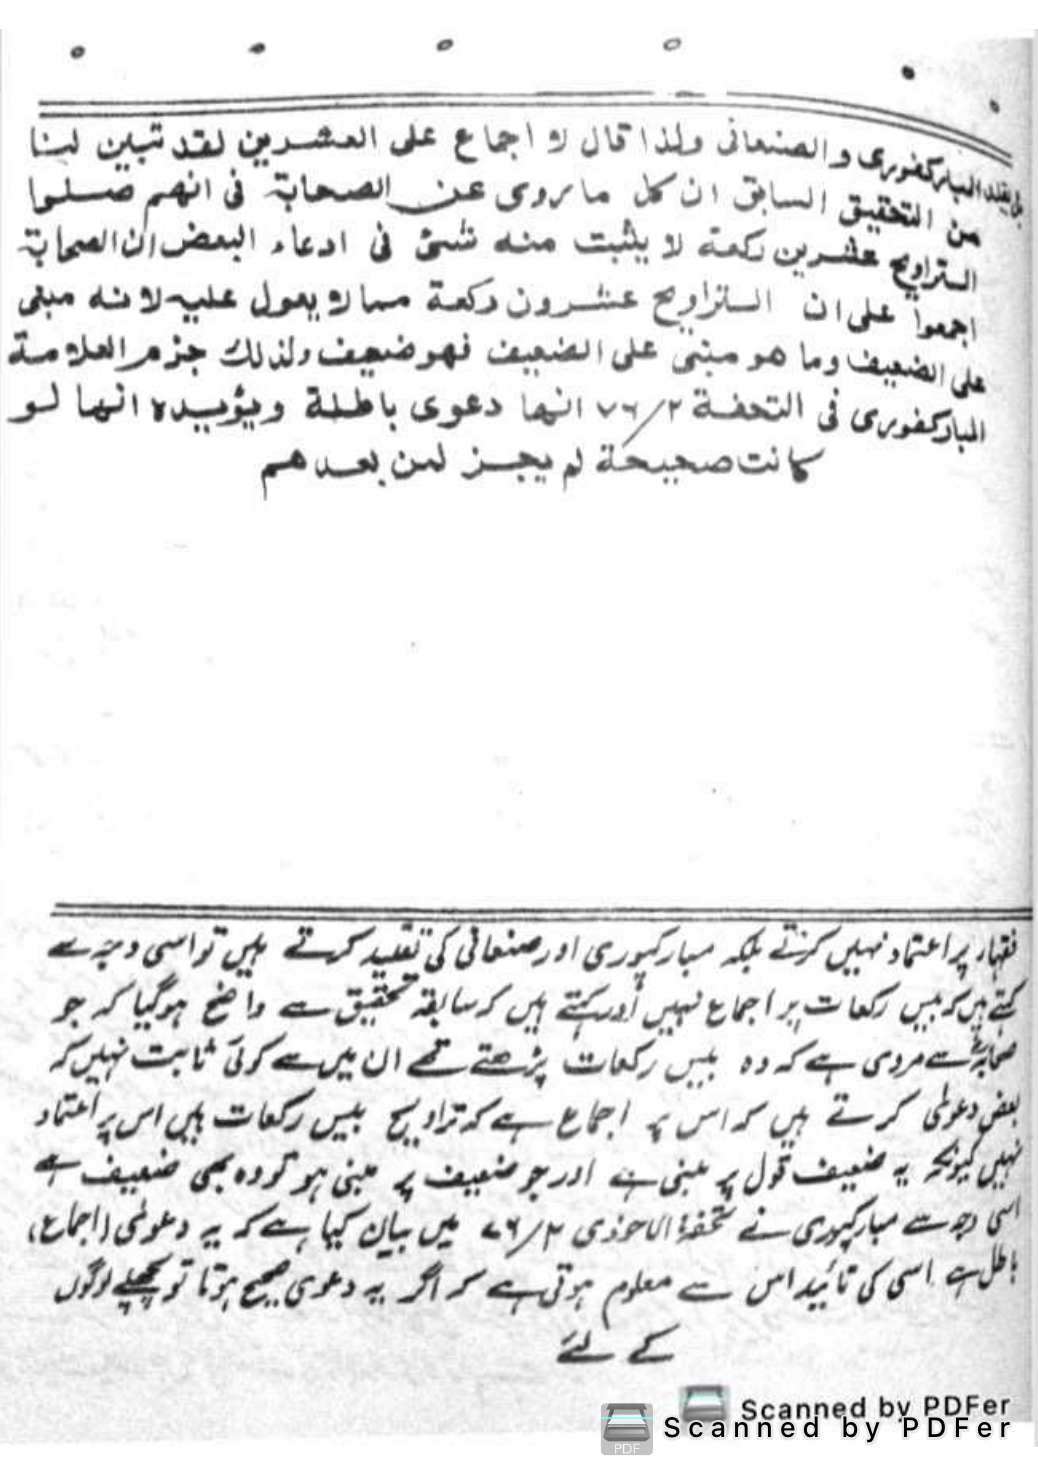 بل يقلد المباركفورى والصنعانى ولذا قال لا اجماع على العشرين لقد تبين لنا
من التحقيق السابق ان كل ما يروى عن الصحابة فى انهم صلوا
التراويح عشرين ركعة لا يثبت منه شئ فى ادعاء البعض ان الصحابة
اجمعوا على ان التراويح عشرون ركعة مما لا يعول عليه لانه مبنى
على الضعيف وما هو مبنى على الضعيف فهو ضعيف ولذلك جزم العلامة
المباركفورى فى التحفة ٢/٧٦ انها دعوى باطلة ويؤيده انها لو
كانت صحيحة لم يجز لمن بعدهم
فقہاء پر اعتماد نہیں کرتے بلکہ مبارکپوری اور صنعانی کی تقلید کرتے ہیں تو اسی وجہ سے
کہتے ہیں کہ بیس رکعات پر اجماع نہیں اور کہتے ہیں کہ سابقہ تحقیق سے واضح ہوگیا کہ جو
صحابہؓ سے مروی ہے کہ وہ بیس رکعات پڑھتے تھے ان میں سے کوئی ثابت نہیں کہ
بعض دعوٰی کرتے ہیں کہ اس پر اجماع ہے کہ تراویح بیس رکعات ہیں اس پر اعتماد
نہیں کیونکہ یہ ضعیف قول پر مبنی ہے اور جو ضعیف پر مبنی ہو تو وہ بھی ضعیف ہے
اسی وجہ سے مبارکپوری نے تحفۃ الاحوذی ۲/۷۶ میں بیان کیا ہے کہ یہ دعوٰی (اجماع)
باطل ہے اسی کی تائید اس سے معلوم ہوتی ہے کہ اگر یہ دعوی صحیح ہوتا تو پچھلے لوگوں
کے لئے
Scanned by PDFer
Scanned by PDFer
PDF